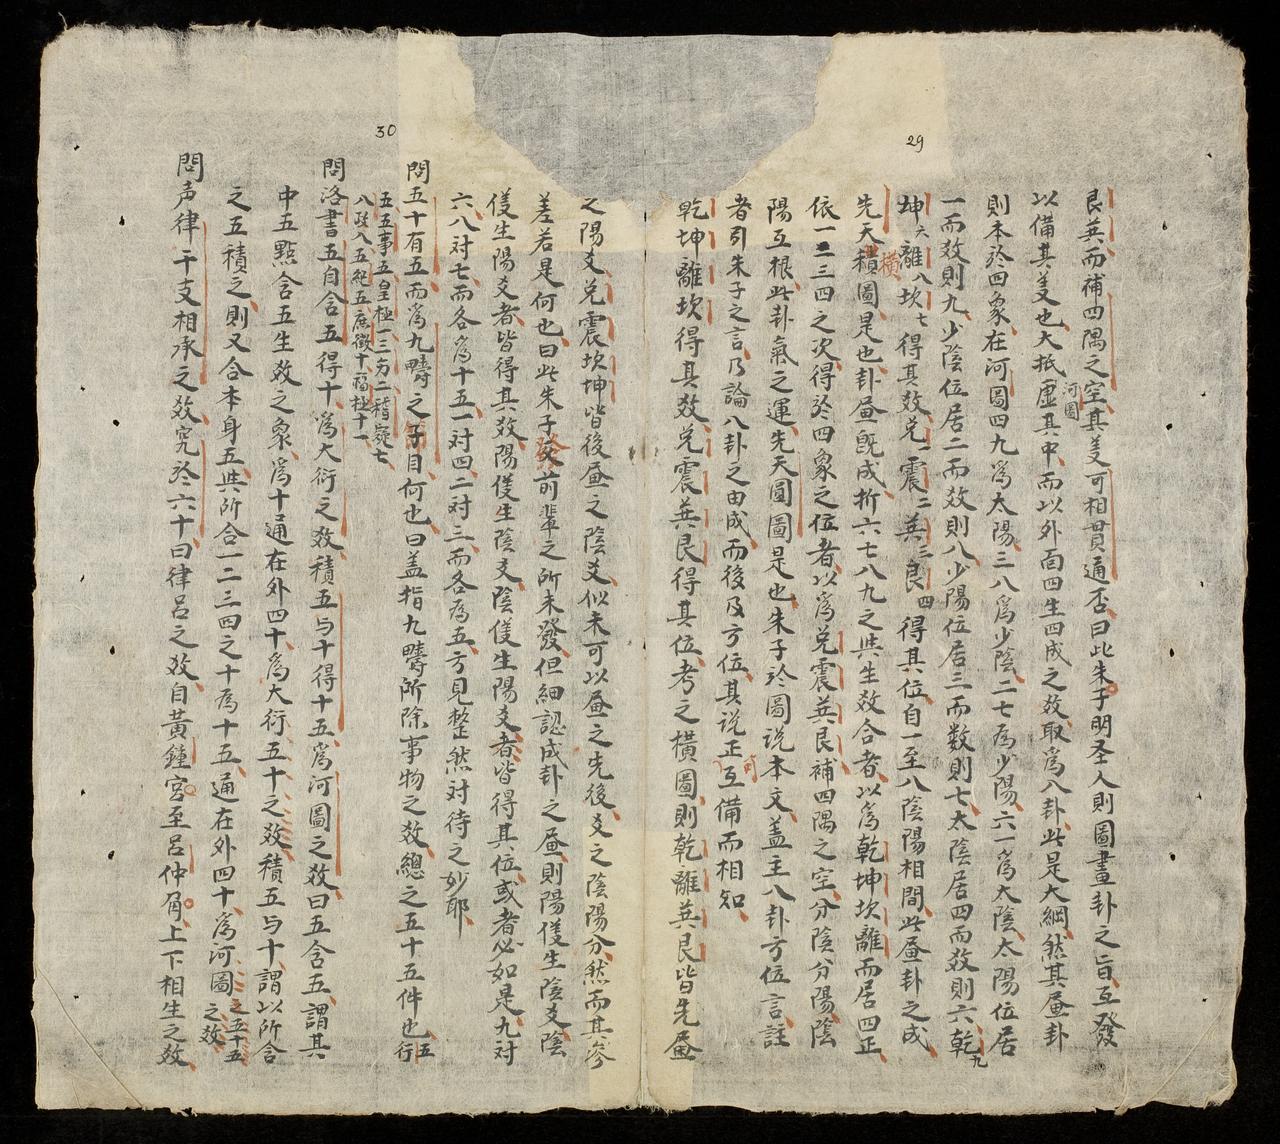 29
艮巽而補四隅之空其義可相貫通否曰此朱子明圣人則圖畫卦之旨互發
以備其義也大抵河圖虛其中而以外面四生四成之数取為八卦此是大綱然其畫卦
則本於四象在河圖四九為太陽三八為少陰二七為少陽六一為太陰太陽位居
一而数則九少陰位居二而数則八少陽位居三而数則七太陰居四而数則六乾九
坤六離八坎七得其数兑一震二巽三艮四得其位自一至八陰陽相間此畫卦之成
先天積橫圖是也卦畫既成折六七八九之共生数合者以為乾坤坎離而居四正
依一二三四之次得於四象之位者以為兑震巽艮補四隅之空分陰分陽陰
陽互根此卦氣之運先天圓圖是也朱子於圖說本文盖主八卦方位言註
者引朱子之言乃論八卦之由成而後及方位其說正互可備而相知
乾坤離坎得其数兑震巽艮得其位考之橫圖則乾離巽艮皆先畫
之陽爻兑震坎坤皆後畫之陰爻似未可以畫之先後爻之陰陽分然而其參
差若是何也曰此朱子發前輩之所未發但細認成卦之畫則陽儀生陰爻陰
儀生陽爻者皆得其数陽儀生陰爻陰儀生陽爻者皆得其位或者必如是九対
六八対七而各為十五一対四二対三而各為五方見整然対待之妙耶
30
問五十有五而為九疇之子目何也曰盖指九疇所除事物之数總之五十五件也五行
五五事五皇極一三方二稽疑七
八政八五紀五庶徵十福極十一
問洛書五自含五得十為大衍之数積五与十得十五為河圖之数曰五含五謂其
中五點含五生数之象為十通在外四十為大衍五十之数積五与十謂以所含
之五積之則又合本身五共所合一二三四之十為十五通在外四十為河圖之五十五之数
問声律干支相承之数究於六十曰律吕之数自黃鍾宮至吕仲角上下相生之数